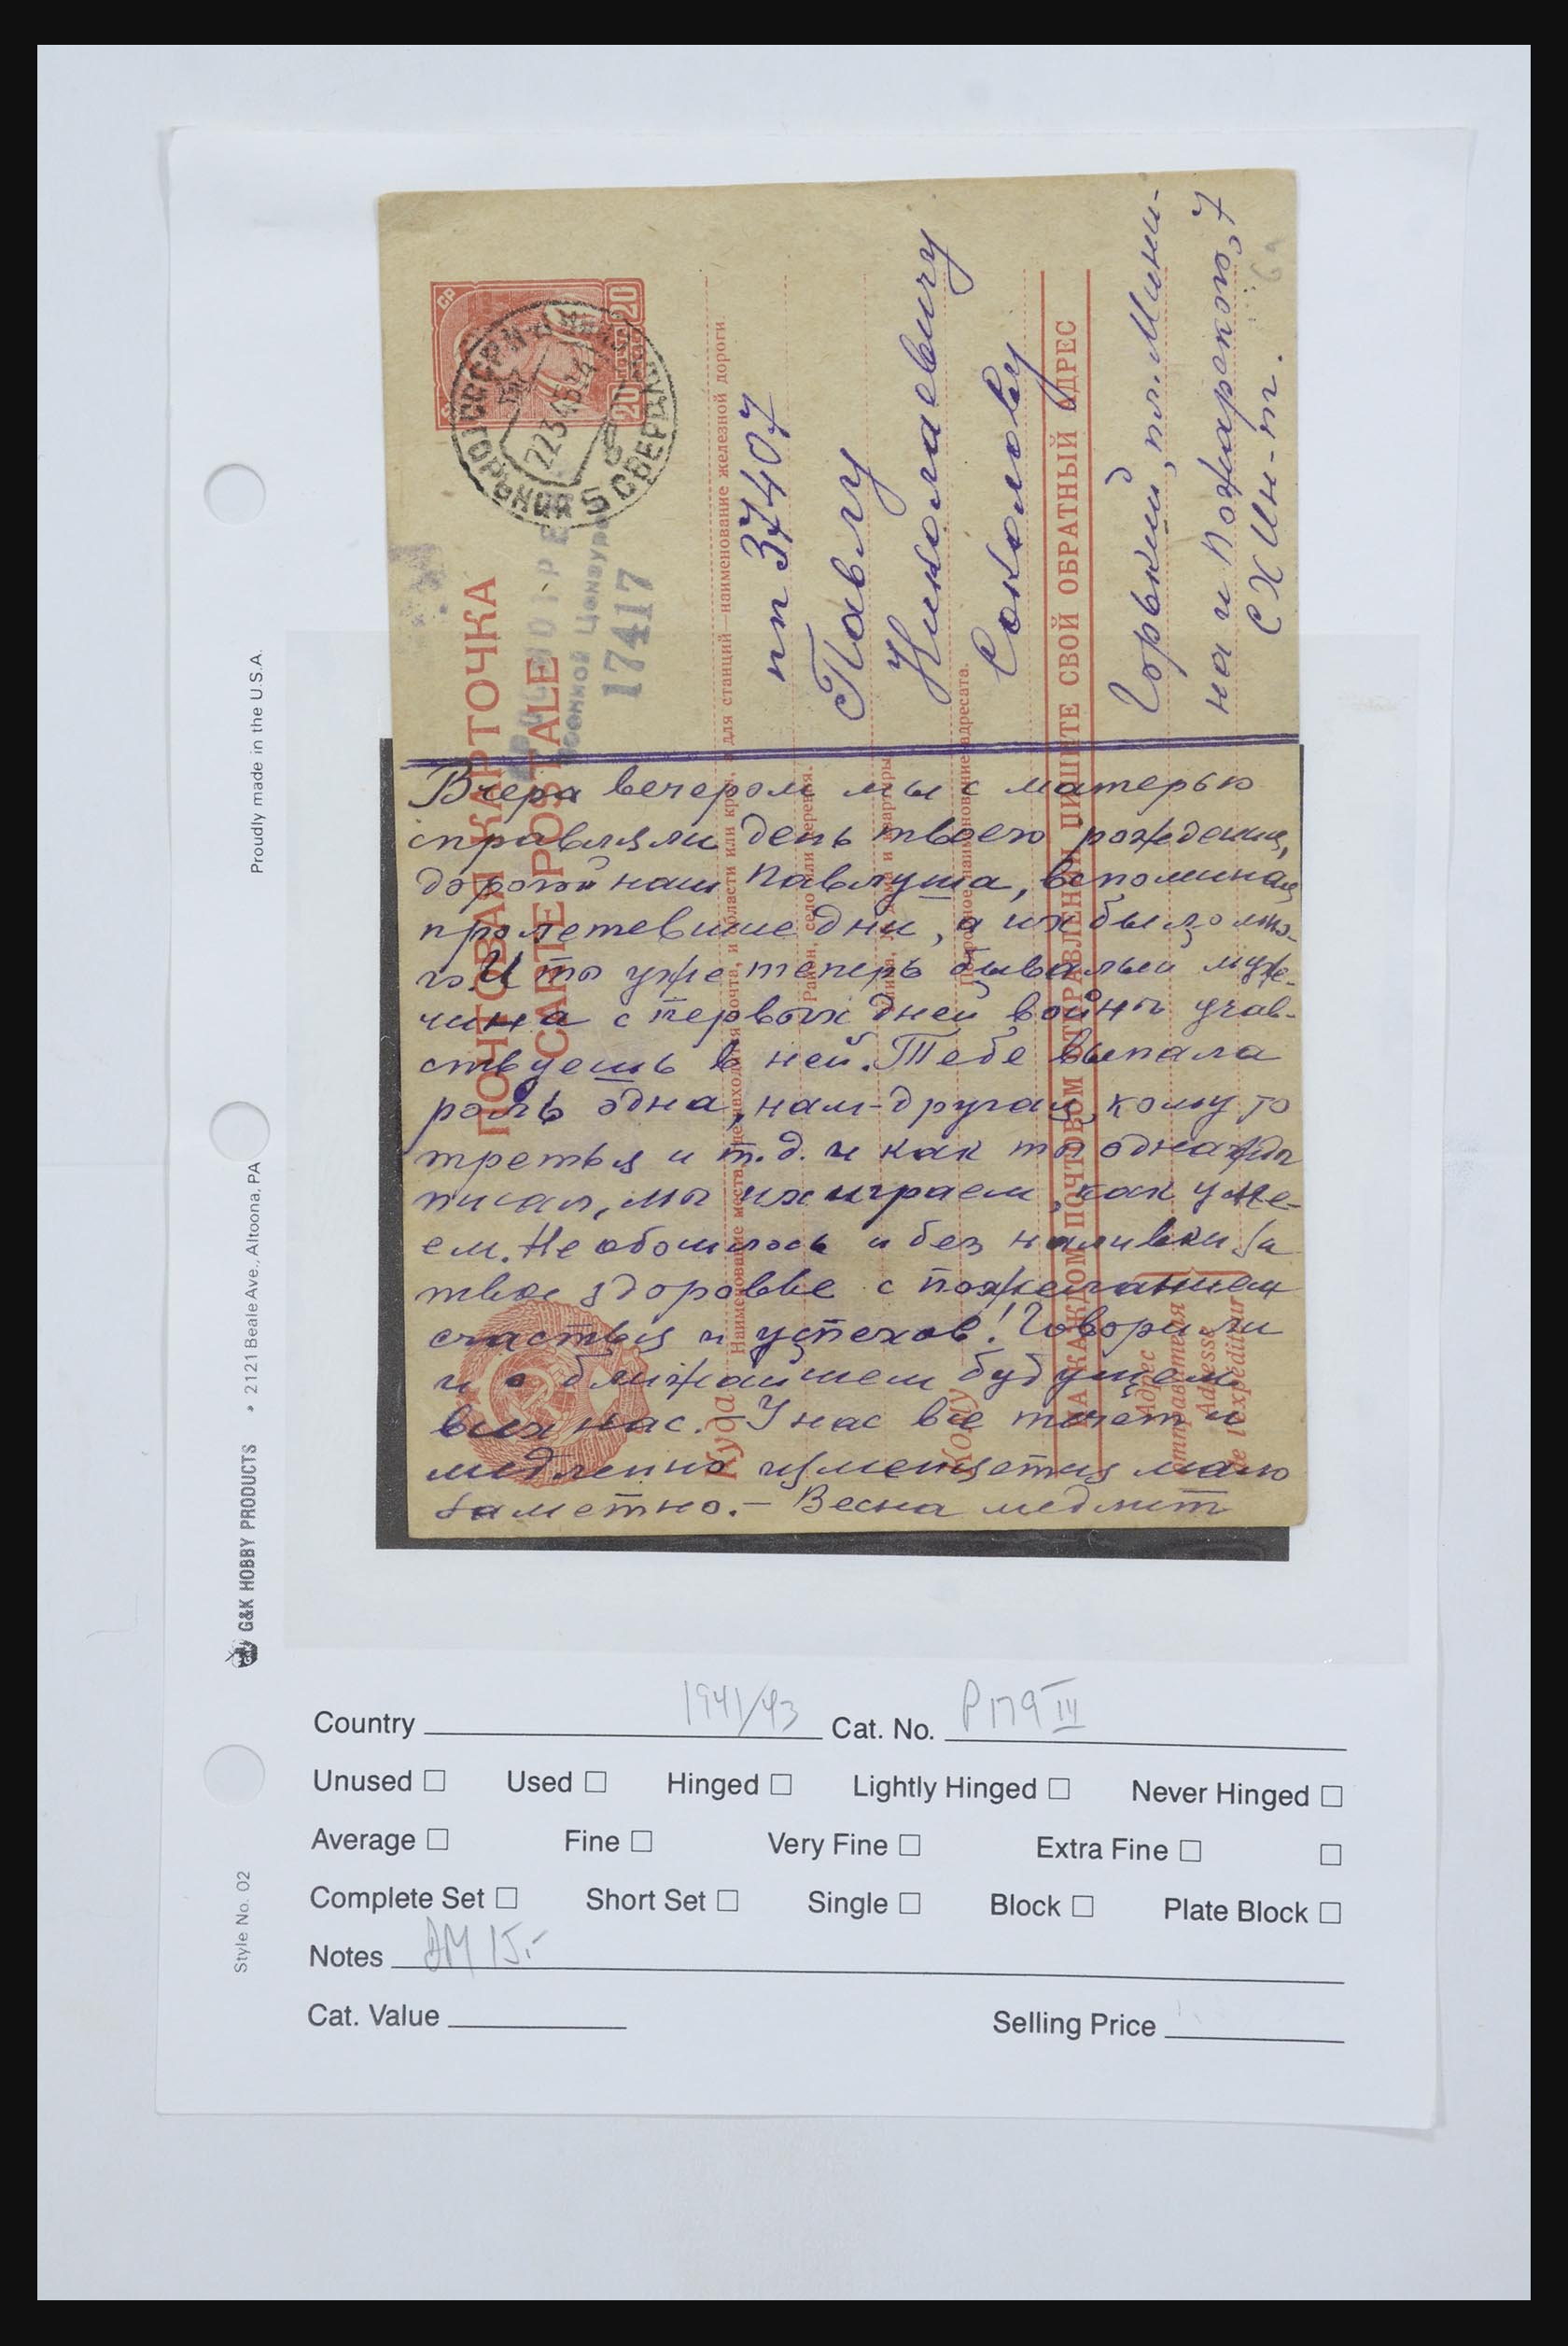 ПОЧТОВАЯ КАРТОЧКА
CARTE POSTALE
20 20
СССР
ГОРЬКИЙ 5 СВЕРДЛ
22 3 43
Военной Цензурой
17417
Наименование места, где находится почта, и области или края, а для станций—наименование железной дороги
пп 37407
Район, село или деревня.
Павлу
Улица, № дома и квартиры
Николаевичу
Подробное наименование адресата.
Соколову
Куда
Кому
НА КАЖДОМ ПОЧТОВОМ ОТПРАВЛЕНИИ ПИШИТЕ СВОЙ ОБРАТНЫЙ АДРЕС
Адрес
отправителя
Adresse
de l'expéditeur
Горький, пл. Мини-
на и Пожарского, 7
СХИн-т.
6а
Вчера вечером мы с матерью
справляли день твоего рождения,
дорогой наш Павлуша, вспоминая
пролетевшие дни, а их было мно-
го. И ты уже теперь бывалый муж-
чина с первых дней войны учав-
ствуешь в ней. Тебе выпала
роль одна, нам-другая, кому то
третья и т.д. и как ты однажды
писал, мы их играем, как уме-
ем. Не обошлось и без наливки за
твое здоровье с пожеланием
счастья и успехов! Говорили
и о ближайшем будущем
всех нас. – У нас все течет и
медленно изменяется мало
заметно. – Весна медлит
Proudly made in the U.S.A.
2121 Beale Ave., Altoona, PA
G&K HOBBY PRODUCTS
Style No. 02
Country 1941/43 Cat. No. P179 III
Unused □ Used □ Hinged □ Lightly Hinged □ Never Hinged □
Average □ Fine □ Very Fine □ Extra Fine □ □
Complete Set □ Short Set □ Single □ Block □ Plate Block □
Notes DM 15,-
Cat. Value
Selling Price